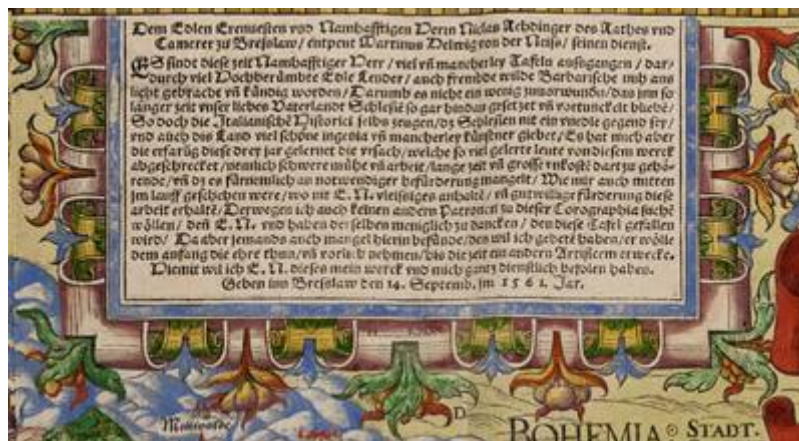 Dem Edlen Erenuesten vnd Namhafftigen Herrn Niclas Rehdinger des Rathes vnd
Camerer zu Breßlaw / entpeut Martinus Helwig von der Neiß / seinen dienst.
ES sinde diese zeit Namhafftiger Herr / viel vñ mancherley Tafeln außgangen / dar/
durch viel Hochberümbte Edle Lender / auch frembde wilde Barbarische ans
licht gebracht vñ kündig worden / Darumb es nicht ein wenig zuuorwundñ / das jnn so
langer zeit vnser liebes Vaterlandt Schlesiẽ so gar hindan gesetzet vñ vortunckelt bliebẽ /
So doch die Italianischẽ Historici selbs zeugen / dz Schlesien nit ein vnedle gegend sey /
vnd auch dis Land viel schöne ingenia vñ mancherley künstner giebet / Es hat mich aber
die erfarũg diese drey jar gelernet die vrsach / welche so viel gelerte leute von diesem werck
abgeschrecket / nemlich schwere mühe vñ arbeit / lange zeit vñ grosse vnkostẽ dartzu gehö-
rende / vñ dz es fürnemlich an notwendiger befürderung mangelt / Wie mir auch mitten
jm lauff geschehen were / wo nit E. N. vielfeiges anhaltẽ / vñ gutwillige fürderung diese
arbeit erhaltẽ / Derwegen ich auch keinen andern Patronen zu dieser Corographia suchẽ
wöllen / deñ E. N. vnd haben derselben meniglich zu dancken / den diese Tafel gefallen
wird / Da aber jemands auch mangel hierin befünde / den wil ich gebetẽ haben / er wölle
dem anfang die ehre thun / vñ vorlieb nehmen / bis die zeit ein andern Artificem erwecke.
Hiemit wil ich E. N. dieses mein werck vnd mich gantz dienstlich befolen haben.
Geben inn Breslaw den 14. Septemb. jm 1561. Jar.
D
BOHEMIA STADT.